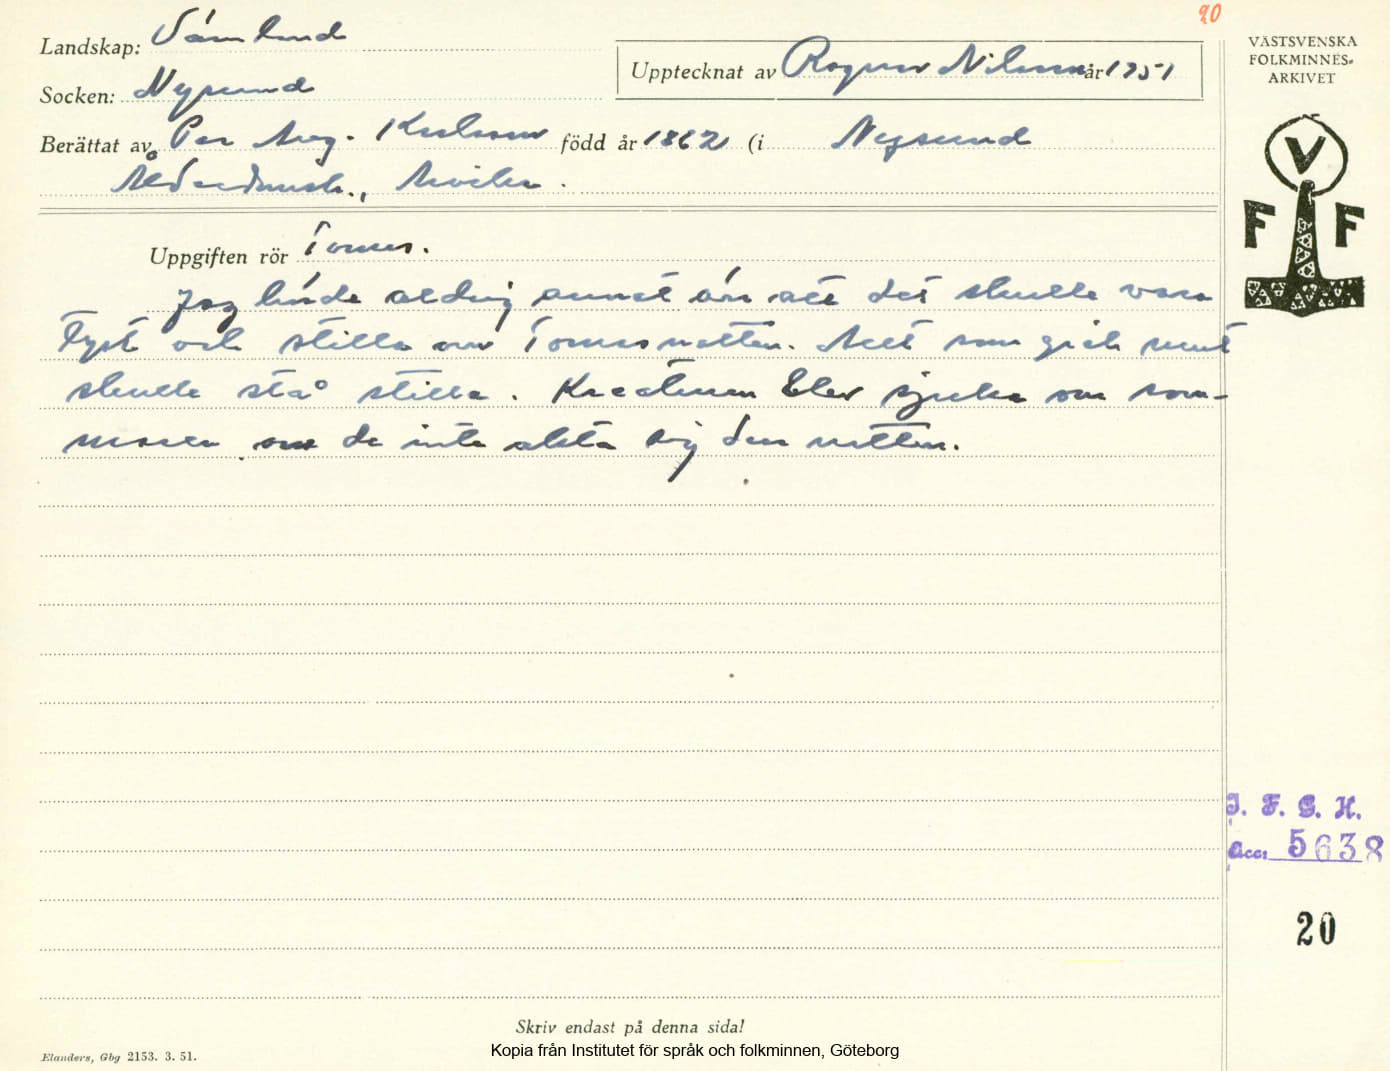 20
Landskap: Värmland
Socken: Nysund
Upptecknat av Ragnar Nilsson år 1951
Berättat av Per Aug. Karlsson född år 1862 (i Nysund
Ålderdomsh., Arvika.
VÄSTSVENSKA
FOLKMINNES-
ARKIVET
V
F F
Uppgiften rör Tomas.
Jag hörde aldrig annat än att det skulle vara
tyst och stilla om Tomasnatten. Allt som gick runt
skulle stå stilla. Kreaturen blev sjuka om som-
maren om de inte akta sig den natten.
I. F. G. H.
Acc: 5638
20
Skriv endast på denna sida!
Elanders, Gbg 2153. 3. 51.
Kopia från Institutet för språk och folkminnen, Göteborg